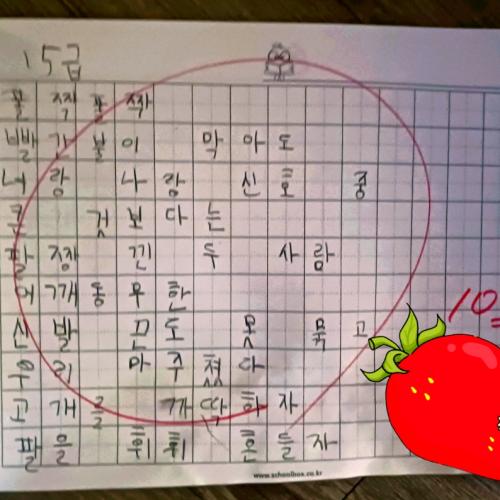 15급
폴짝폴짝
빨간불이 막아도
너랑 나랑 신호 중
큰 것보다는
팔짱 낀 두 사람
어깨동무한
신발 끈도 못 묶고
우리 마주쳤다
고개를 까딱하자
팔을 휘휘 흔들자
10
www.schoolbox.co.kr